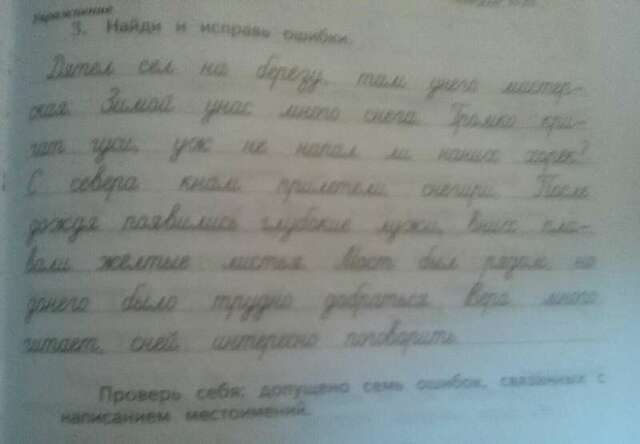 Упражнение
3. Найди и исправь ошибки.
Дятел сел на берёзу, там унего мастер-
ская. Зимой унас много снега. Громко кри-
чат гуси, уж не напал ли наних хорёк?
С севера кнам прилетели снегири. После
дождя появились глубокие лужи, вних пла-
вали жёлтые листья. Мост был рядом, но
донего было трудно добраться. Вера много
читает, сней интересно поговорить.
Проверь себя: допущено семь ошибок, связанных с
написанием местоимений.